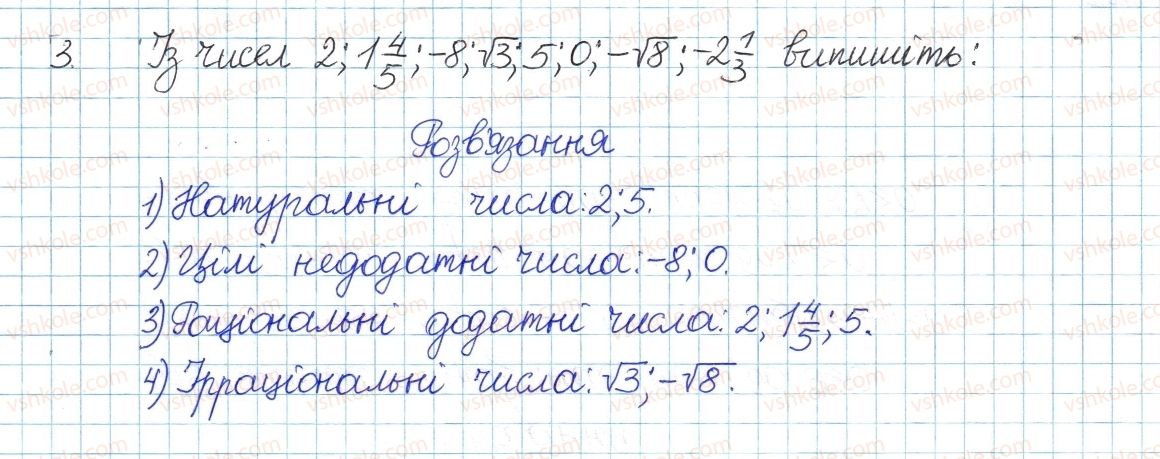 3. Із чисел 2; 1 4/5; -8; √3; 5; 0; -√8; -2 1/3 випишіть:
Розв'язання
1) Натуральні числа: 2; 5.
2) Цілі недодатні числа: -8; 0.
3) Раціональні додатні числа: 2; 1 4/5; 5.
4) Ірраціональні числа: √3; -√8.